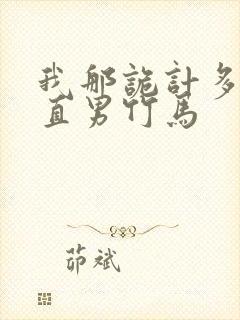 我那詭計多
直男竹馬
茆斌